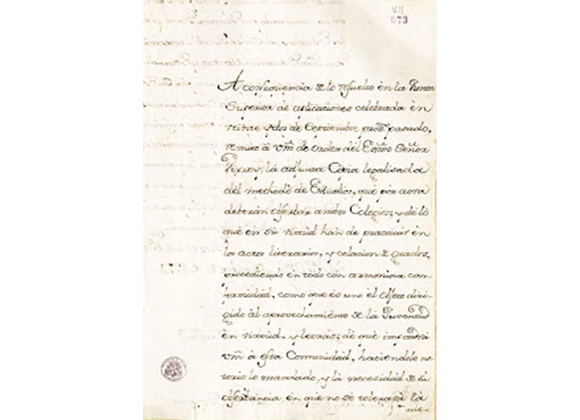 VII
073
A consequencia de lo resuelto en la Junta
Superior de aplicaciones celebrada en
veinte y dos de Septiembre pasado,
remito à Vm̃ de orden del Exm̃o Señor
Virrey, la adjunta Copia legalisada
del methodo de Estudios, que por aora
deberán observar ambos Colegios; y de lo
que en su virtud han de practicar en
los actos literarios, y colacion de grados,
procediendo en todo con armoniosa con-
formidad, como que es uno el objeto diri-
gido al aprovechamiento de la Juventud
en virtud, y letras; de que impondrá
Vm̃ à essa Comunidad, haciendole no-
torio lo mandado, y la necesidad de su
observancia, en que no se tolerará la
me-